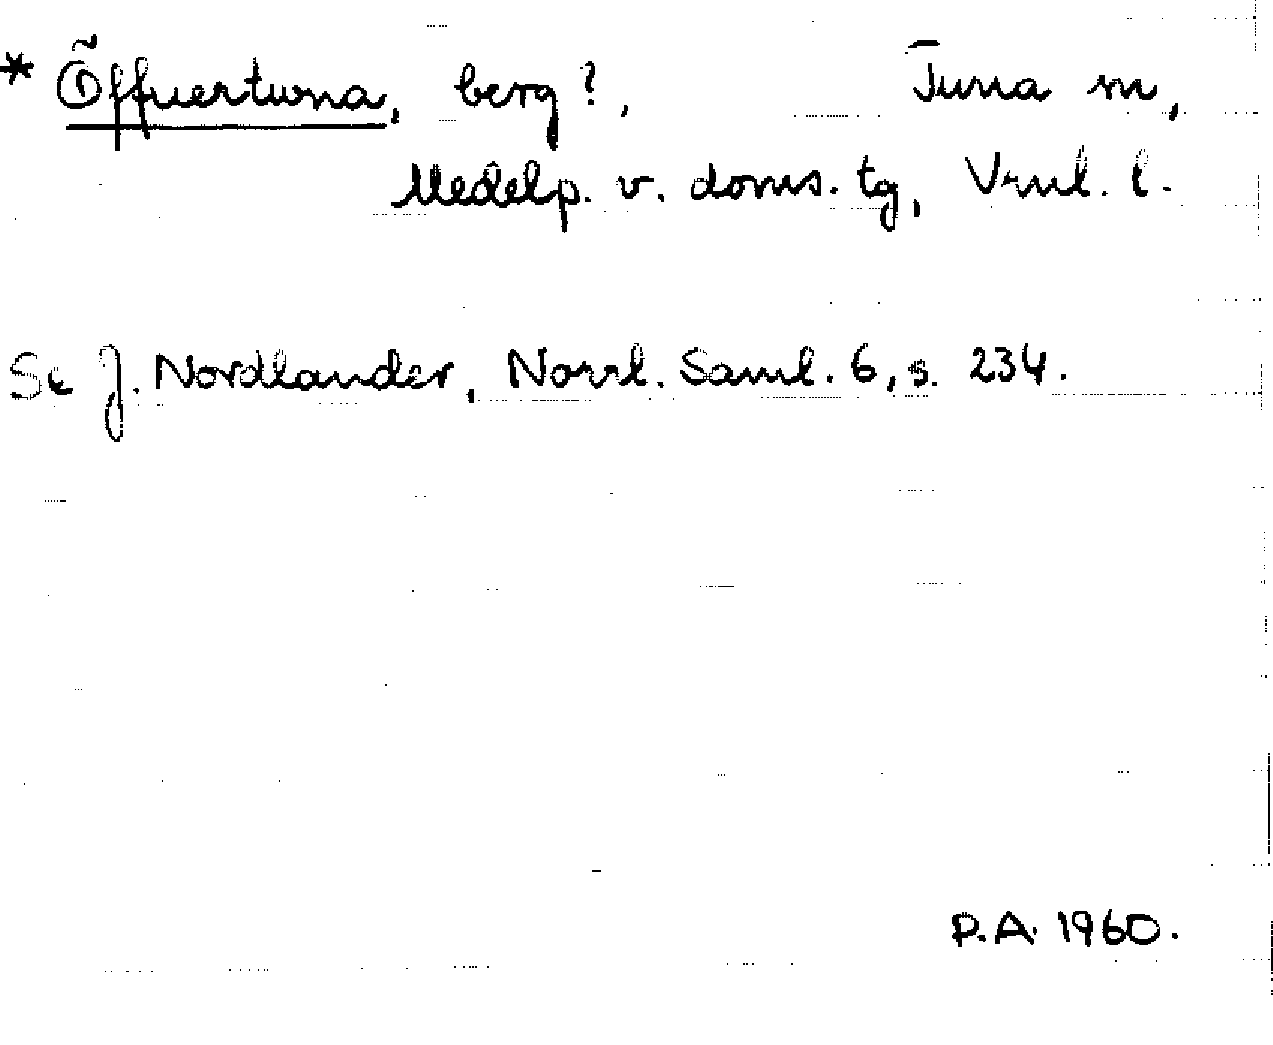 * Öffuertuna, berg?, Tuna sn,
Medelp. v. doms. tg, Vrnl. l.
Se J. Nordlander, Norrl. Saml. 6, s. 234.
P.A. 1960.